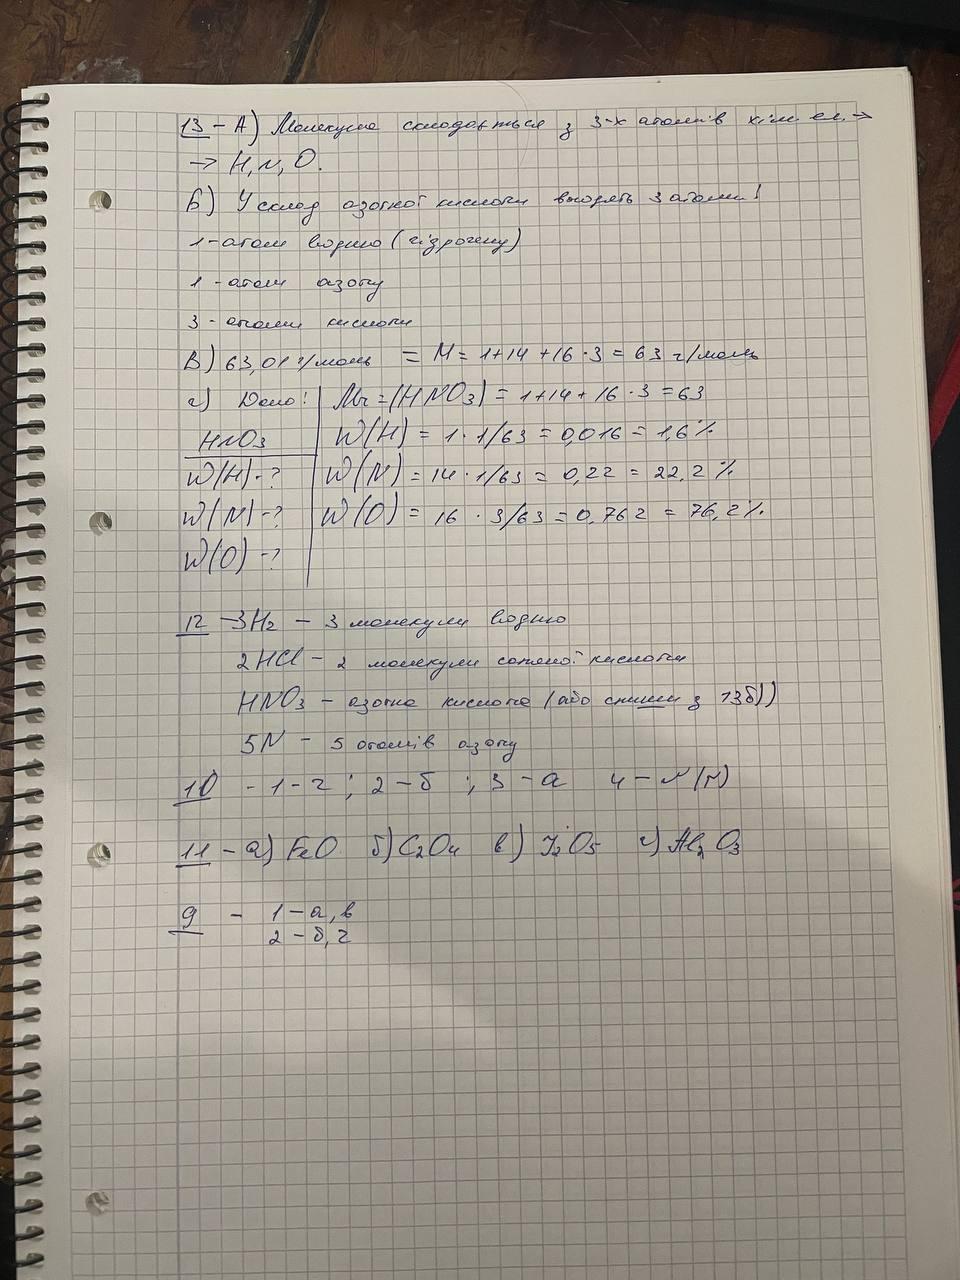 13 - А) Молекула складається з 3-х атомів хім. ел. →
→ H, N, O.
б) У склад азотної кислоти входять 3 атоми!
1-атом водню (гідрогену)
1-атом азоту
3-атоми кислоти
В) 63,01 г/моль = M = 1+14+16·3 = 63 г/моль
г) Дано: Mr=(HNO3) = 1+14+16·3=63
HNO3 W(H) = 1·1/63 = 0,016 = 1,6%
W(H)-? W(N) = 14·1/63 = 0,22 = 22,2%
W(N)-? W(O) = 16·3/63 = 0,762 = 76,2%
W(O)-?
12 -3H2 - 3 молекули водню
2HCl - 2 молекули соляної кислоти
HNO3 - азотна кислота (або спиши з 13б))
5N - 5 атомів азоту
10 - 1-г; 2-б; 3-а 4-
11 - а) FeO б) C2O4 в) I2O5 г) Al2O3
9 - 1-а, в
2-б, г